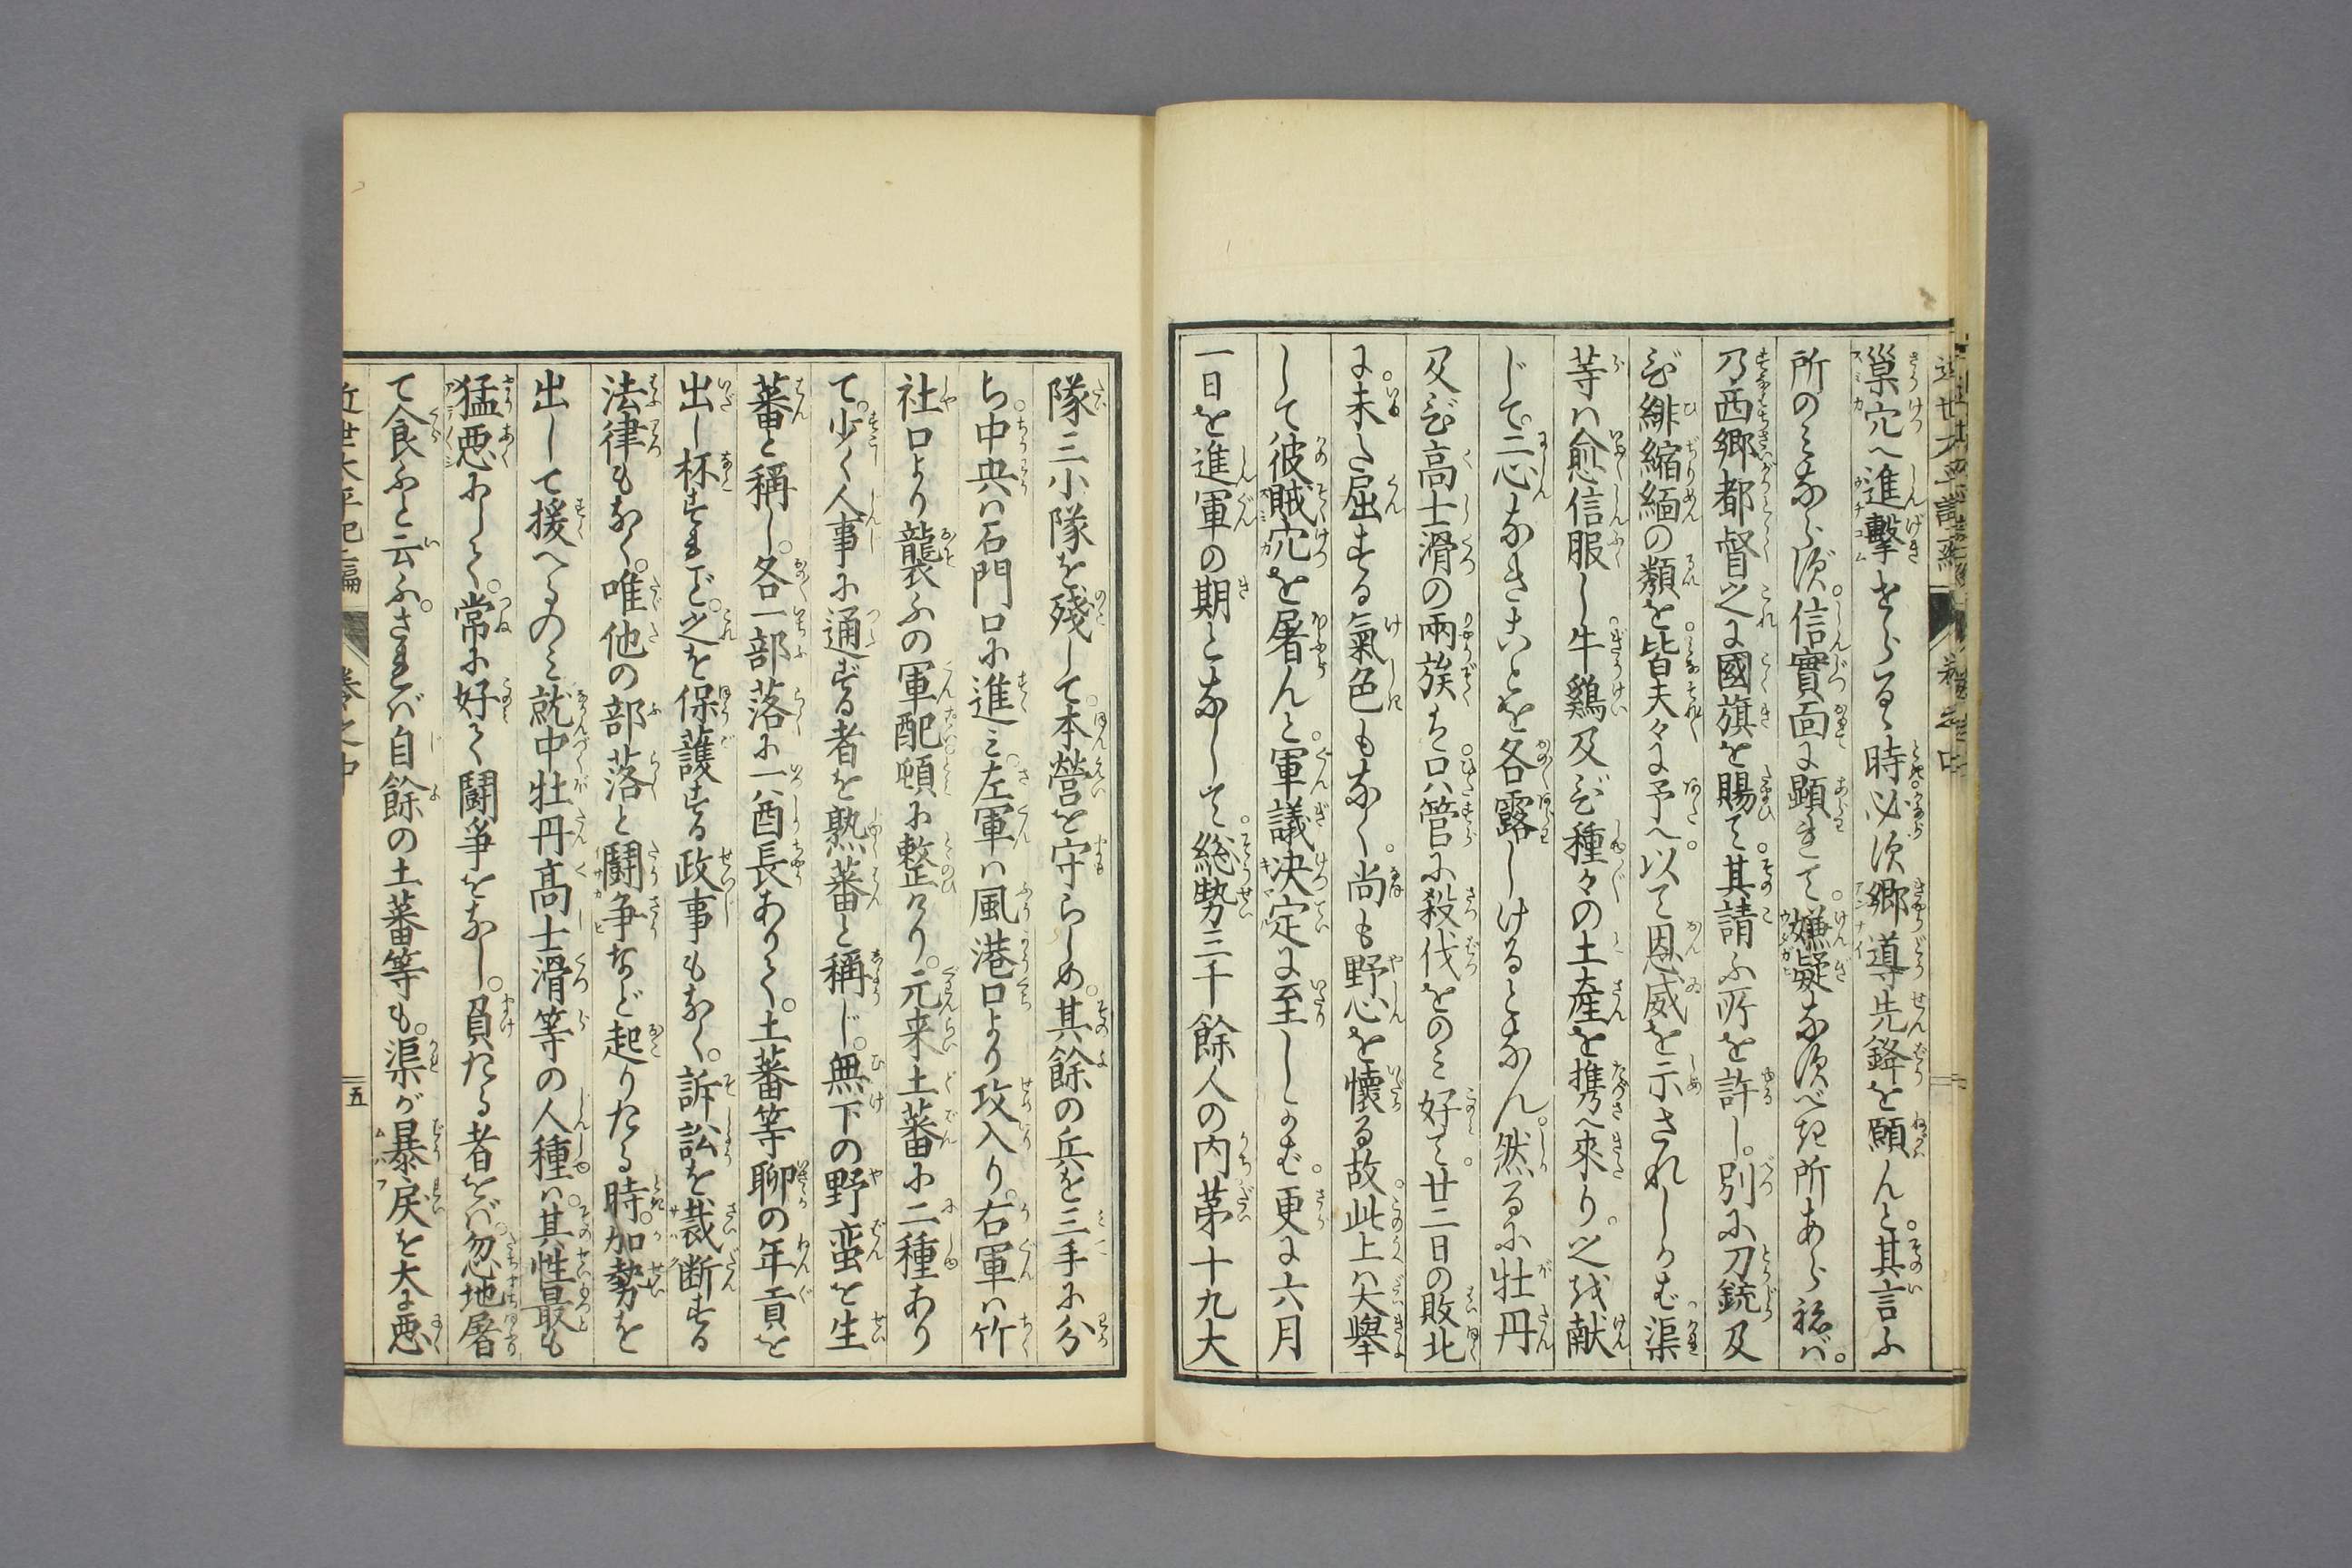 巣穴へ進擊せらるゝ時必ず郷導先鋒を願んと。其言ふ
所のみならず。信實面に顕れて。嫌疑なすべき所あらねバ。
乃西郷都督之に國旗を賜て。其請ふ所を許し。別に刀銃及
び緋縮緬の類を。皆夫々に予へ。以て恩威を示されしかむ渠
等ハ愈信服し。牛鷄及び種々の土産を携へ来り。之を献
じて。二心なきよしを各露しけるとなん。然るに牡丹
及び高士滑の兩族ハ。只管に殺伐をのみ好て。廿二日の敗北
に。未た屈する氣色もなく。尚も野心を懐る故。此上ハ大擧
して彼賊穴を屠んと。軍議决定に至しかむ。更に六月
一日を進軍の期となして。総勢三千餘人の内第十九大
隊三小隊を殘して。本營を守らしめ。其餘の兵を三手に分
ち。中央ハ石門口に進み。左軍ハ風港口より攻入り。右軍ハ竹
社口より襲ふの軍配頓に整けり。元来土蕃に二種あり
て。少く人事に通ずる者を熟蕃と稱じ。無下の野蛮を生
蕃と稱し。各一部落に一酋長ありて。土蕃等聊の年貢を
出し抔すれど。之を保護する政事もなく。訴訟を裁断する
法律もなく。唯他の部落と闘争など起りたる時。加勢を
出して援へるのみ就中牡丹高士滑等の人種ハ。其性最も
猛悪にして。常に好て闘爭をなし。負たる者をバ。忽地屠
て食ふと云ふ。されバ自餘の土蕃等も。渠が暴戻を大に悪
近世太平記二編 巻之中 五